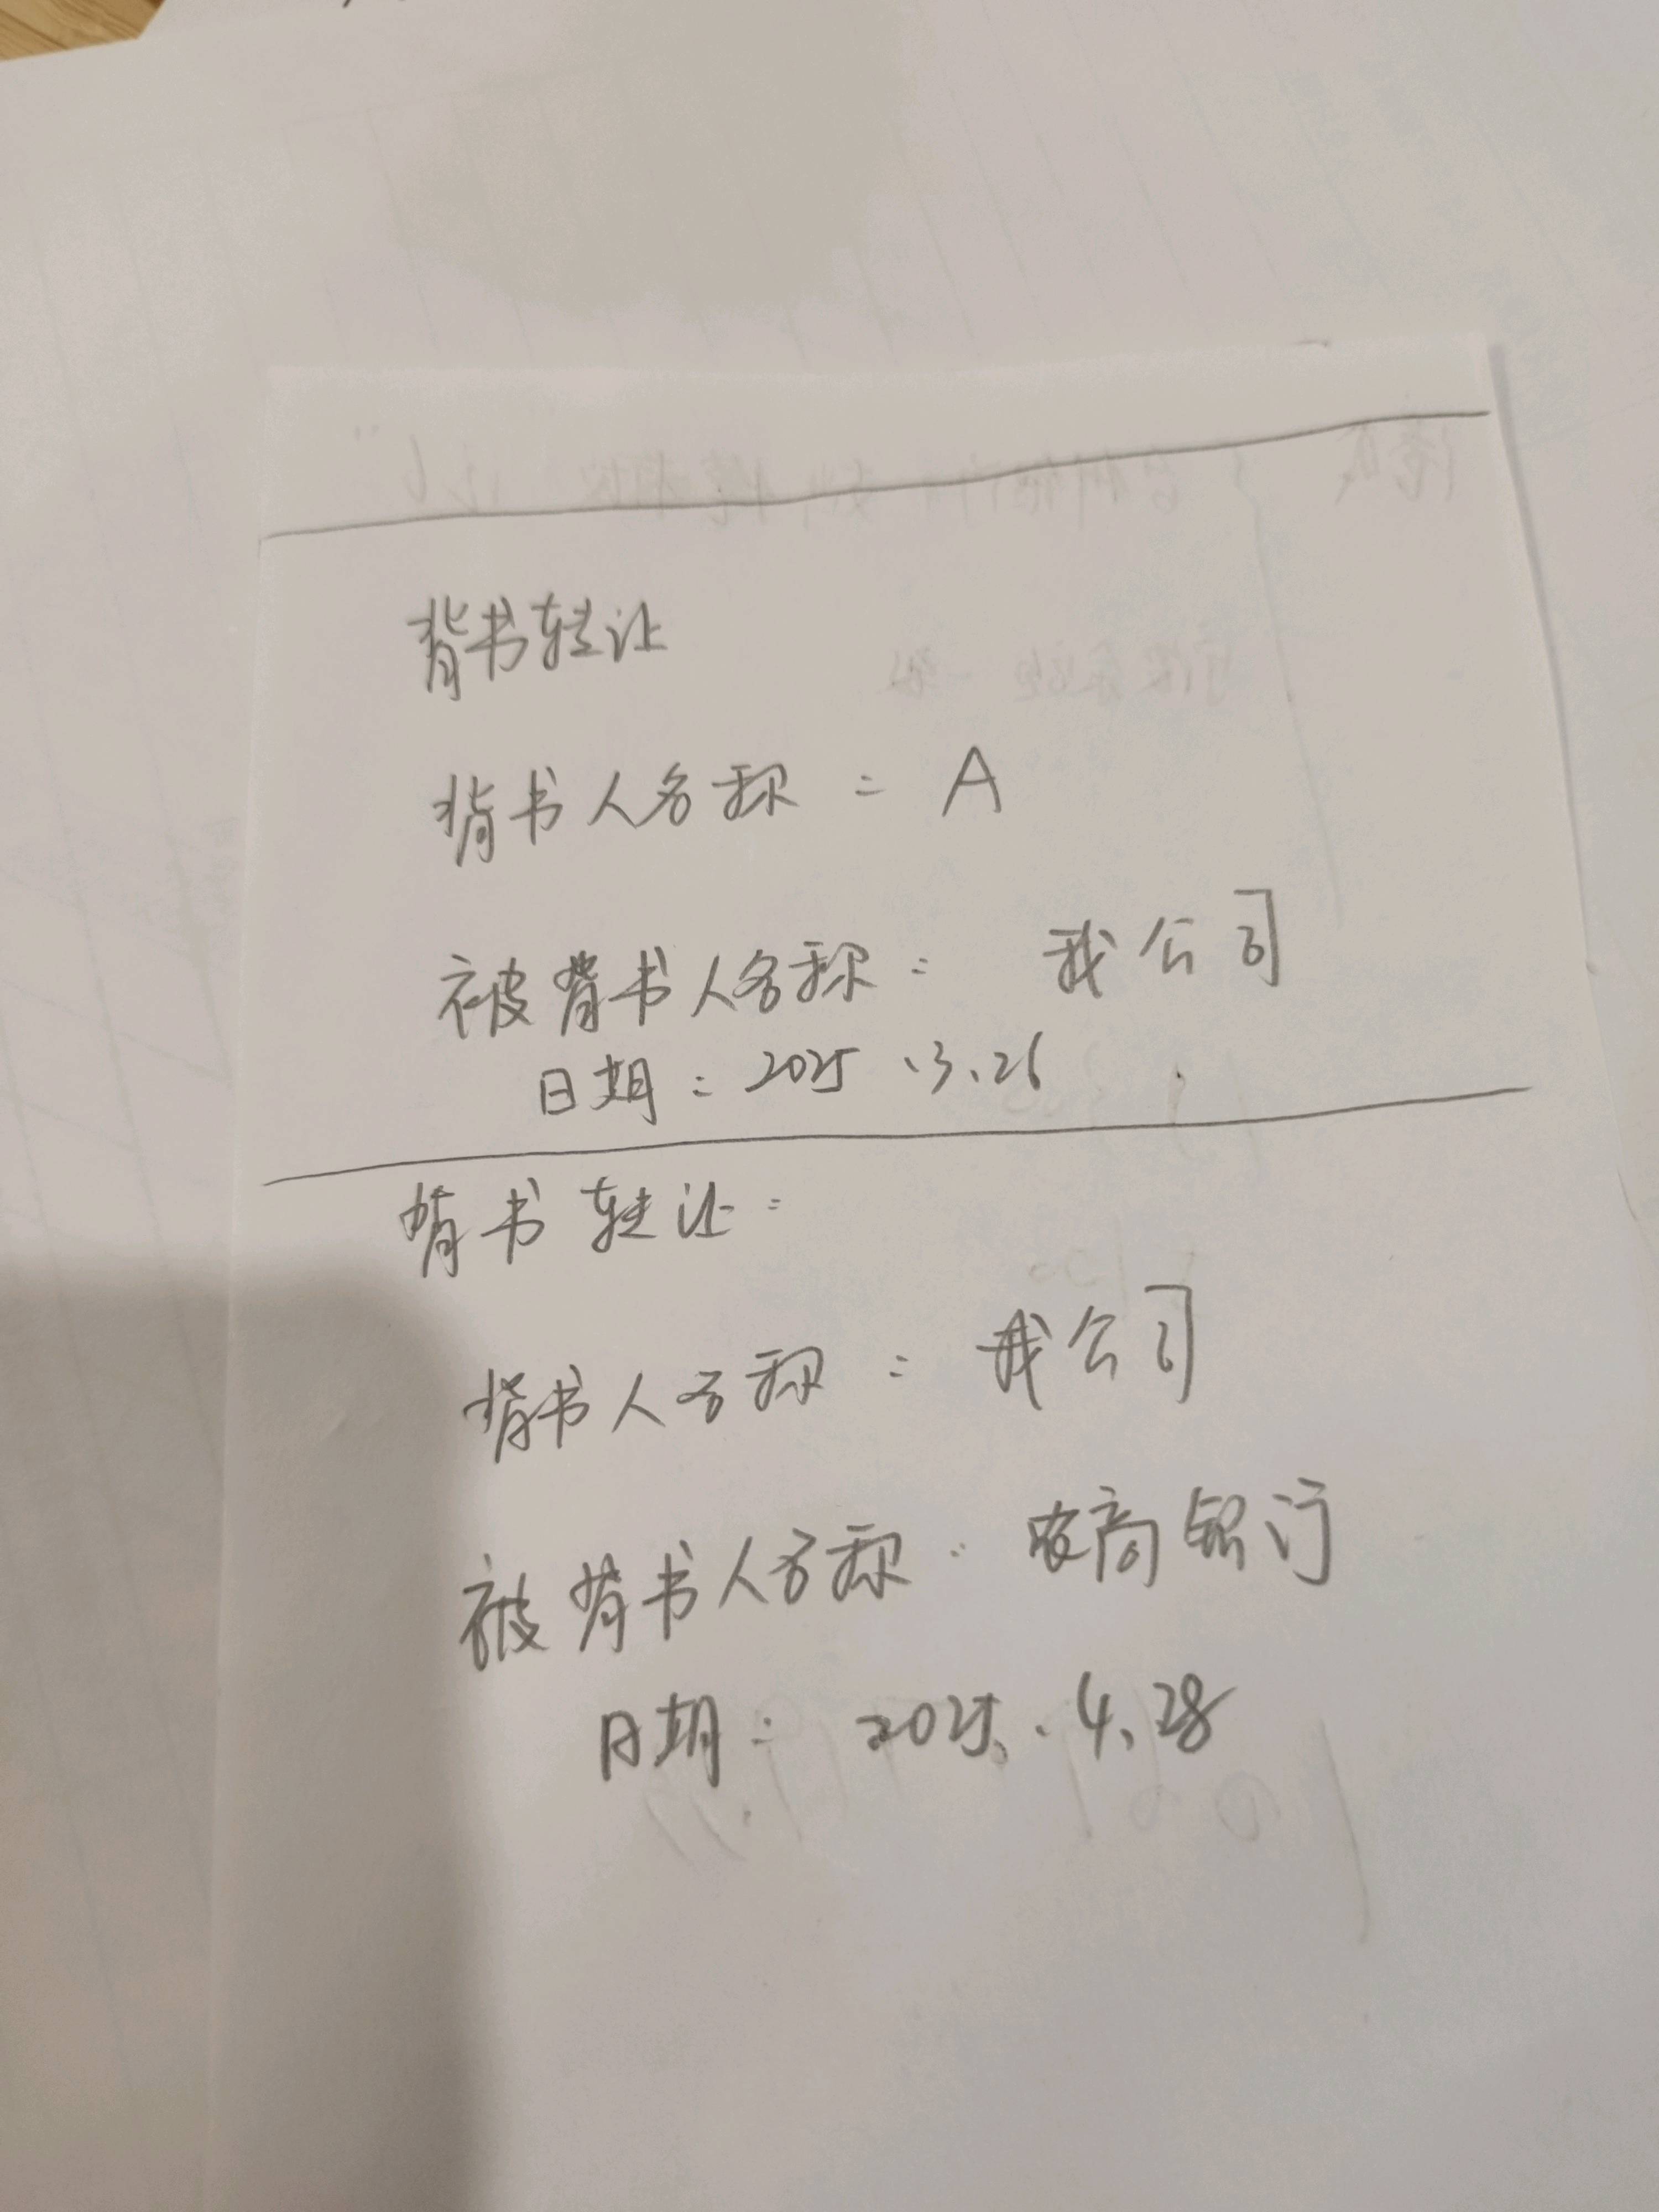 背书转让
背书人名称：A
被背书人名称：我公司
日期：2025.3.26
背书转让：
背书人名称：我公司
被背书人名称：农商银行
日期：2025.4.28